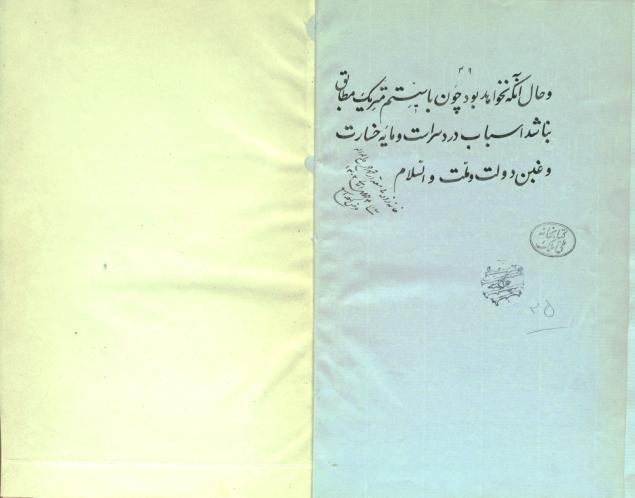 ۳۹
و حال آنکه نخواهد بود چون با سیستم متریک مطابق
نباشد اسباب دردسر است و مایه خسارت
و غبن دولت و ملت والسلام
کتابخانه
ملی ملک
۲۵